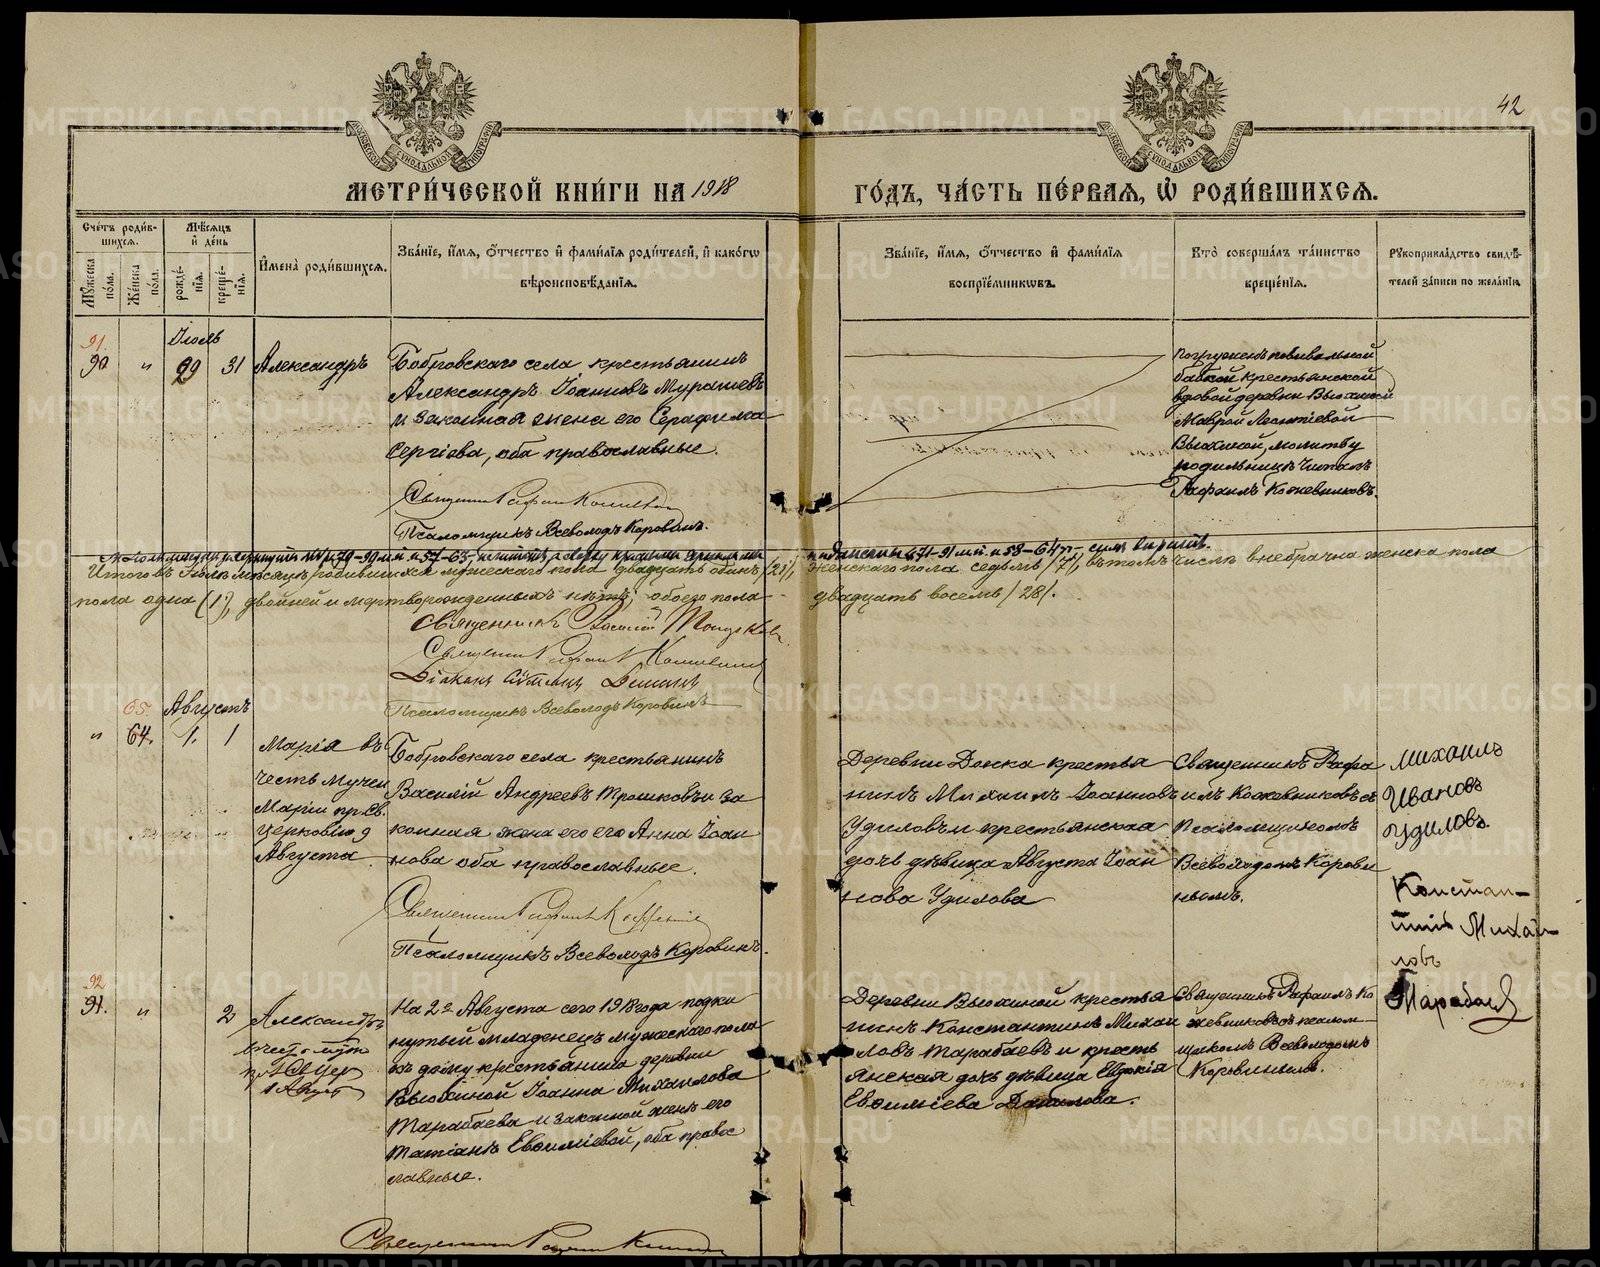 42
МЕТРИ́ЧЕСКОЙ КНИ́ГИ НА 1918
ГО́ДЪ, ЧА́СТЬ ПЕ́РВАЯ, Ѡ РОДИ́ВШИХСЯ.
Сче́тъ роди́в-
шихся.
Мѣ́сяцъ
и де́нь
Му́жеска
по́ла.
Же́нска
по́ла.
рожде́-
нія.
креще́-
нія.
Имена̀ роди́вшихся.
Зва́ніе, и́мя, о́тчество и фами́лія роди́телей, и како́гѡ
вѣроисповѣ́данія.
Зва́ніе, и́мя, о́тчество и фами́лія
воспріе́мникѡвъ.
Кто̀ соверша́лъ та́инство
креще́нія.
Рукоприкла́дство свидѣ́-
телей за́писи по жела́нію.
Іюль
91.
90 " 29 31 Александръ
Бобровскаго села крестьянинъ
Александръ Іоанновъ Мурашевъ
и законная жена его Серафима
Сергіева, оба православные.
Псаломщикъ Всеволодъ Коровинъ.
Погруженъ повивальной
бабкой крестьянской
вдовой деревни Вьюхиной
Маврой Леонтіевой
Вьюхиной, молитву
родильницѣ читалъ
Рафаилъ Кожевниковъ.
Итого въ Іюлѣ мѣсяцѣ родившихся мужескаго пола двадцать одинъ (21),
женскаго пола седьмь /7/, въ томъ числѣ внебрачна женска пола
пола одна (1), двойней и мертворожденныхъ нѣтъ; обоего пола
двадцать восемь /28/.
Священникъ Василій
Псаломщикъ Всеволодъ Коровинъ
65. Августъ
" 64. 1. 1
Марія въ
честь мучен
Маріи пр Св.
Церковію 9
Августа
Бобровскаго села крестьянинъ
Василій Андреевъ Трошковъ и за
конная жена его его Анна Іоан
нова оба православные.
Псаломщикъ Всеволодъ Коровинъ.
Деревни Доска крестья
нинъ Михаилъ Іоанновъ
Удиловъ и крестьянская
дочь дѣвица Августа Іоан
нова Удилова
Священникъ Рафа
илъ Кожевниковъ съ
Псаломщикомъ
Всеволодомъ Корови
нымъ.
Михаилъ
Ивановъ
Удиловъ.
92
91. " 2
Александръ
На 2е Августа сего 1918 года подки
нутый младенецъ мужескаго пола
къ дому крестьянина деревни
Вьюхиной Іоанна Михаилова
Тарабаева и законной женѣ его
Татіанѣ Евѳиміевой, оба право
славные.
Деревни Вьюхиной крестья
нинъ Константинъ Михаи
ловъ Тарабаевъ и кресть
янская дочь дѣвица Евдокія
Евѳиміева Данилова.
Священникъ Рафаилъ Ко
жевниковъ съ псалом
щикомъ Всеволодомъ
Коровинымъ.
Констан-
тинъ Михаи
ловъ
Тарабаев